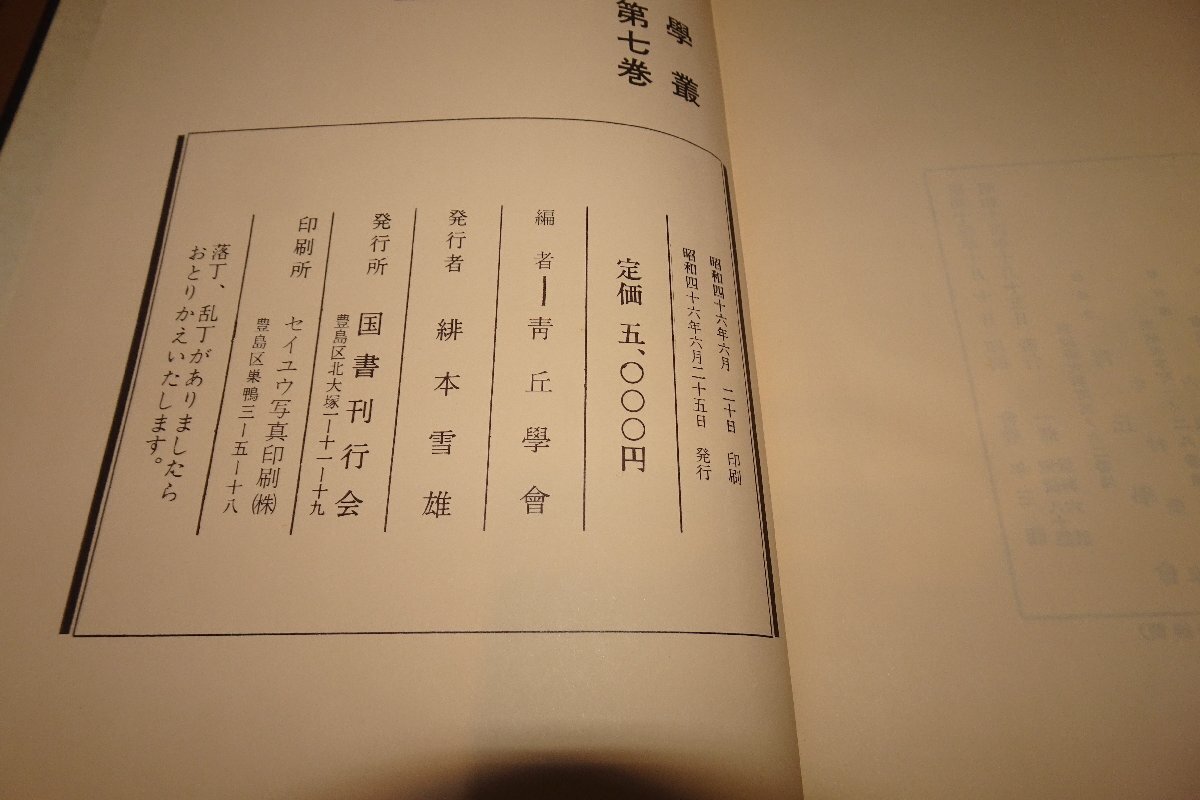 學叢
第七巻
昭和四十六年六月 二十日 印刷
昭和四十六年六月二十五日 発行
定価 五、〇〇〇円
編者ー靑丘學會
発行者 緋本雪雄
発行所 国書刊行会
豊島区北大塚一ー十一ー十九
印刷所 セイユウ写真印刷㈱
豊島区巣鴨三ー五ー十八
落丁、乱丁がありましたら
おとりかえいたします。